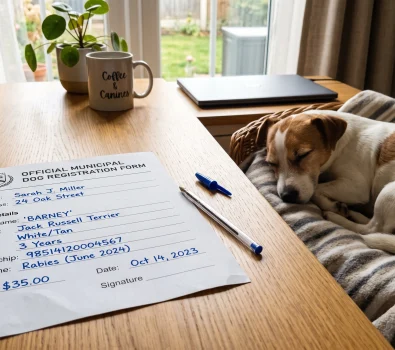 Coffee
&
Canines
OFFICIAL MUNICIPAL
DOG REGISTRATION FORM
Sarah J. Miller
24 Oak Street
'BARNEY'
Jack Russell Terrier
White/Tan
3 Years
98514120004567
Rabies (June 2024)
$35.00
Date: Oct 14, 2023
Signature